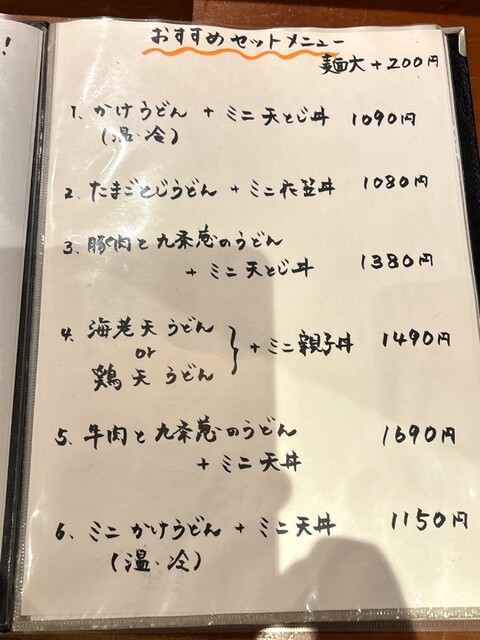 ！
おすすめセットメニュー
麺大 +200円
1. かけうどん + ミニ天とじ丼 1090円
(温・冷)
2. たまごとじうどん + ミニ衣笠丼 1080円
3. 豚肉と九条葱のうどん
+ ミニ天とじ丼 1380円
4. 海老天うどん
or
鶏天うどん
} + ミニ親子丼 1490円
5. 牛肉と九条葱のうどん 1690円
+ ミニ天丼
6. ミニかけうどん + ミニ天丼 1150円
(温・冷)